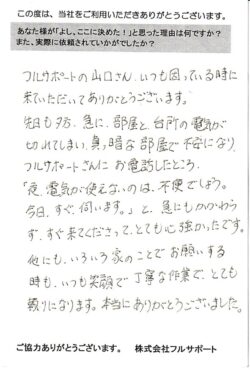 この度は、当社をご利用いただきありがとうございます。
あなた様が「よし、ここに決めた！」と思った理由は何ですか？
また、実際に依頼されていかがでしたか？
フルサポートの山口さん、いつも困っている時に
来ていただいてありがとうございます。
先日も夕方、急に、部屋と台所の電気が
切れてしまい、真っ暗な部屋で不安になり、
フルサポートさんにお電話したところ、
「夜、電気が使えないのは、不便でしょう。
今日、すぐ、伺います。」と、急にもかかわら
ず、すぐ来てくださって、とても心強かったです。
他にも、いろいろ家のことでお願いする
時も、いつも笑顔で丁寧な作業で、とても
頼りになります。本当にありがとうございました。
ご協力ありがとうございます。 株式会社フルサポート